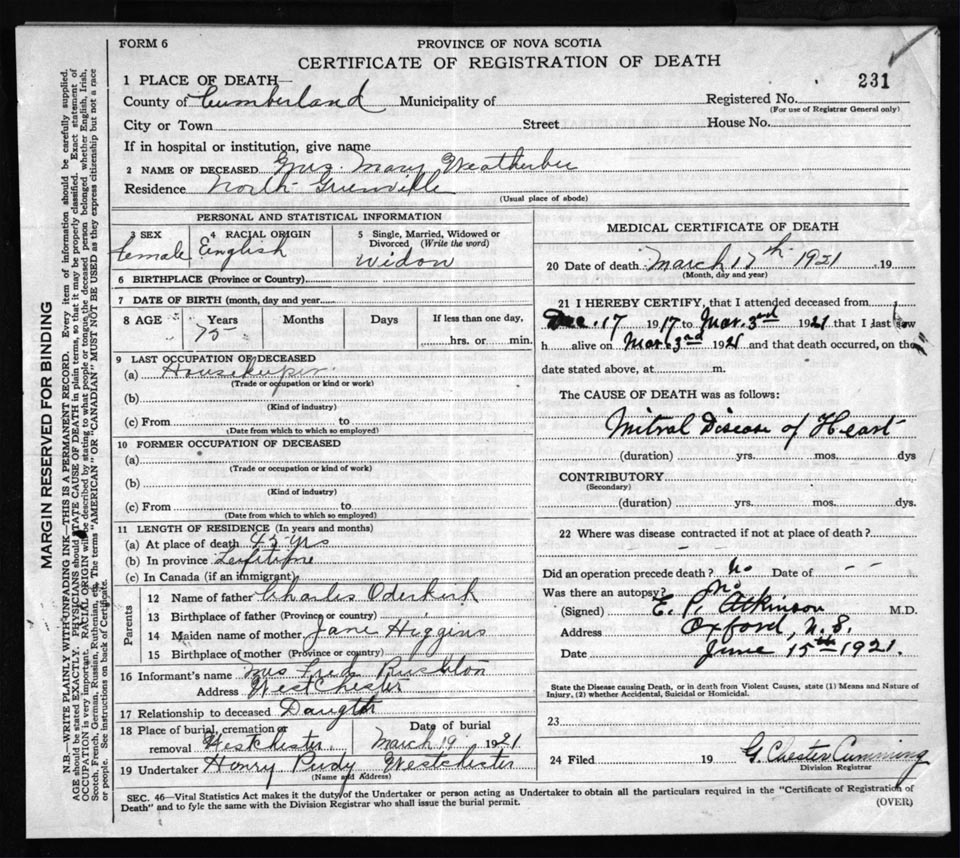 FORM 6
PROVINCE OF NOVA SCOTIA
CERTIFICATE OF REGISTRATION OF DEATH
231
1 PLACE OF DEATH—
County of Cumberland Municipality of Registered No.
(For use of Registrar General only)
City or Town Street House No.
If in hospital or institution, give name
2 NAME OF DECEASED Mrs. Mary Weatherbee
Residence North Greenville
(Usual place of abode)
PERSONAL AND STATISTICAL INFORMATION
3 SEX
female
4 RACIAL ORIGIN
English
5 Single, Married, Widowed or Divorced (Write the word)
Widow
6 BIRTHPLACE (Province or Country)
7 DATE OF BIRTH (month, day and year
8 AGE Years Months Days If less than one day,
75 hrs. or min.
9 LAST OCCUPATION OF DECEASED
(a) Housekeeper
(Trade or occupation or kind or work)
(b)
(Kind of industry)
(c) From to
(Date from which to which so employed)
10 FORMER OCCUPATION OF DECEASED
(a)
(Trade or occupation or kind of work)
(b)
(Kind of industry)
(c) From to
(Date from which to which so employed)
11 LENGTH OF RESIDENCE (In years and months)
(a) At place of death 45 yrs
(b) In province Lifetime
(c) In Canada (if an immigrant)
Parents
12 Name of father Charles Oderkirk
13 Birthplace of father (Province or country)
14 Maiden name of mother Jane Higgins
15 Birthplace of mother (Province or country)
16 Informant's name Mrs Fred Rushton
Address Westchester
17 Relationship to deceased Daugter
18 Place of burial, cremation or Date of burial
removal Westchester March 19 1921
19 Undertaker Henry Purdy Westchester
(Name and Address)
MEDICAL CERTIFICATE OF DEATH
20 Date of death March 17th 1921 19
(Month, day and year)
21 I HEREBY CERTIFY, that I attended deceased from
Dec. 17 1917 to Mar. 3rd 1921 that I last saw
h alive on Mar. 3rd 1921 and that death occurred, on the
date stated above, at m.
The CAUSE OF DEATH was as follows:
Mitral Disease of Heart
(duration) yrs. mos. dys
CONTRIBUTORY
(Secondary)
(duration) yrs. mos. dys.
22 Where was disease contracted if not at place of death?
Did an operation precede death? No Date of - -
Was there an autopsy? No
(Signed) E. P. Atkinson M.D.
Address Oxford, N.S.
Date June 15th 1921.
State the Disease causing Death, or in death from Violent Causes, state (1) Means and Nature of
Injury, (2) whether Accidental, Suicidal or Homicidal.
23
24 Filed 19 G. Chester Cumming
Division Registrar
SEC. 46—Vital Statistics Act makes it the duty of the Undertaker or person acting as Undertaker to obtain all the particulars required in the "Certificate of Registration of
Death" and to fyle the same with the Division Registrar who shall issue the burial permit.
(OVER)
MARGIN RESERVED FOR BINDING
N.B.—WRITE PLAINLY WITH UNFADING INK—THIS IS A PERMANENT RECORD. Every item of information should be carefully supplied.
AGE should be stated EXACTLY. PHYSICIANS should STATE CAUSE OF DEATH in plain terms, so that it may be properly classified. Exact statement of
OCCUPATION is very important. RACIAL ORIGIN will be described by stating to what people or tongue the deceased person belonged whether English, Irish,
Scotch, French, German, Russian, Ruthenian, etc. The terms "AMERICAN" OR "CANADIAN" MUST NOT BE USED as they express citizenship but not a race
or people. See instructions on back of Certificate.